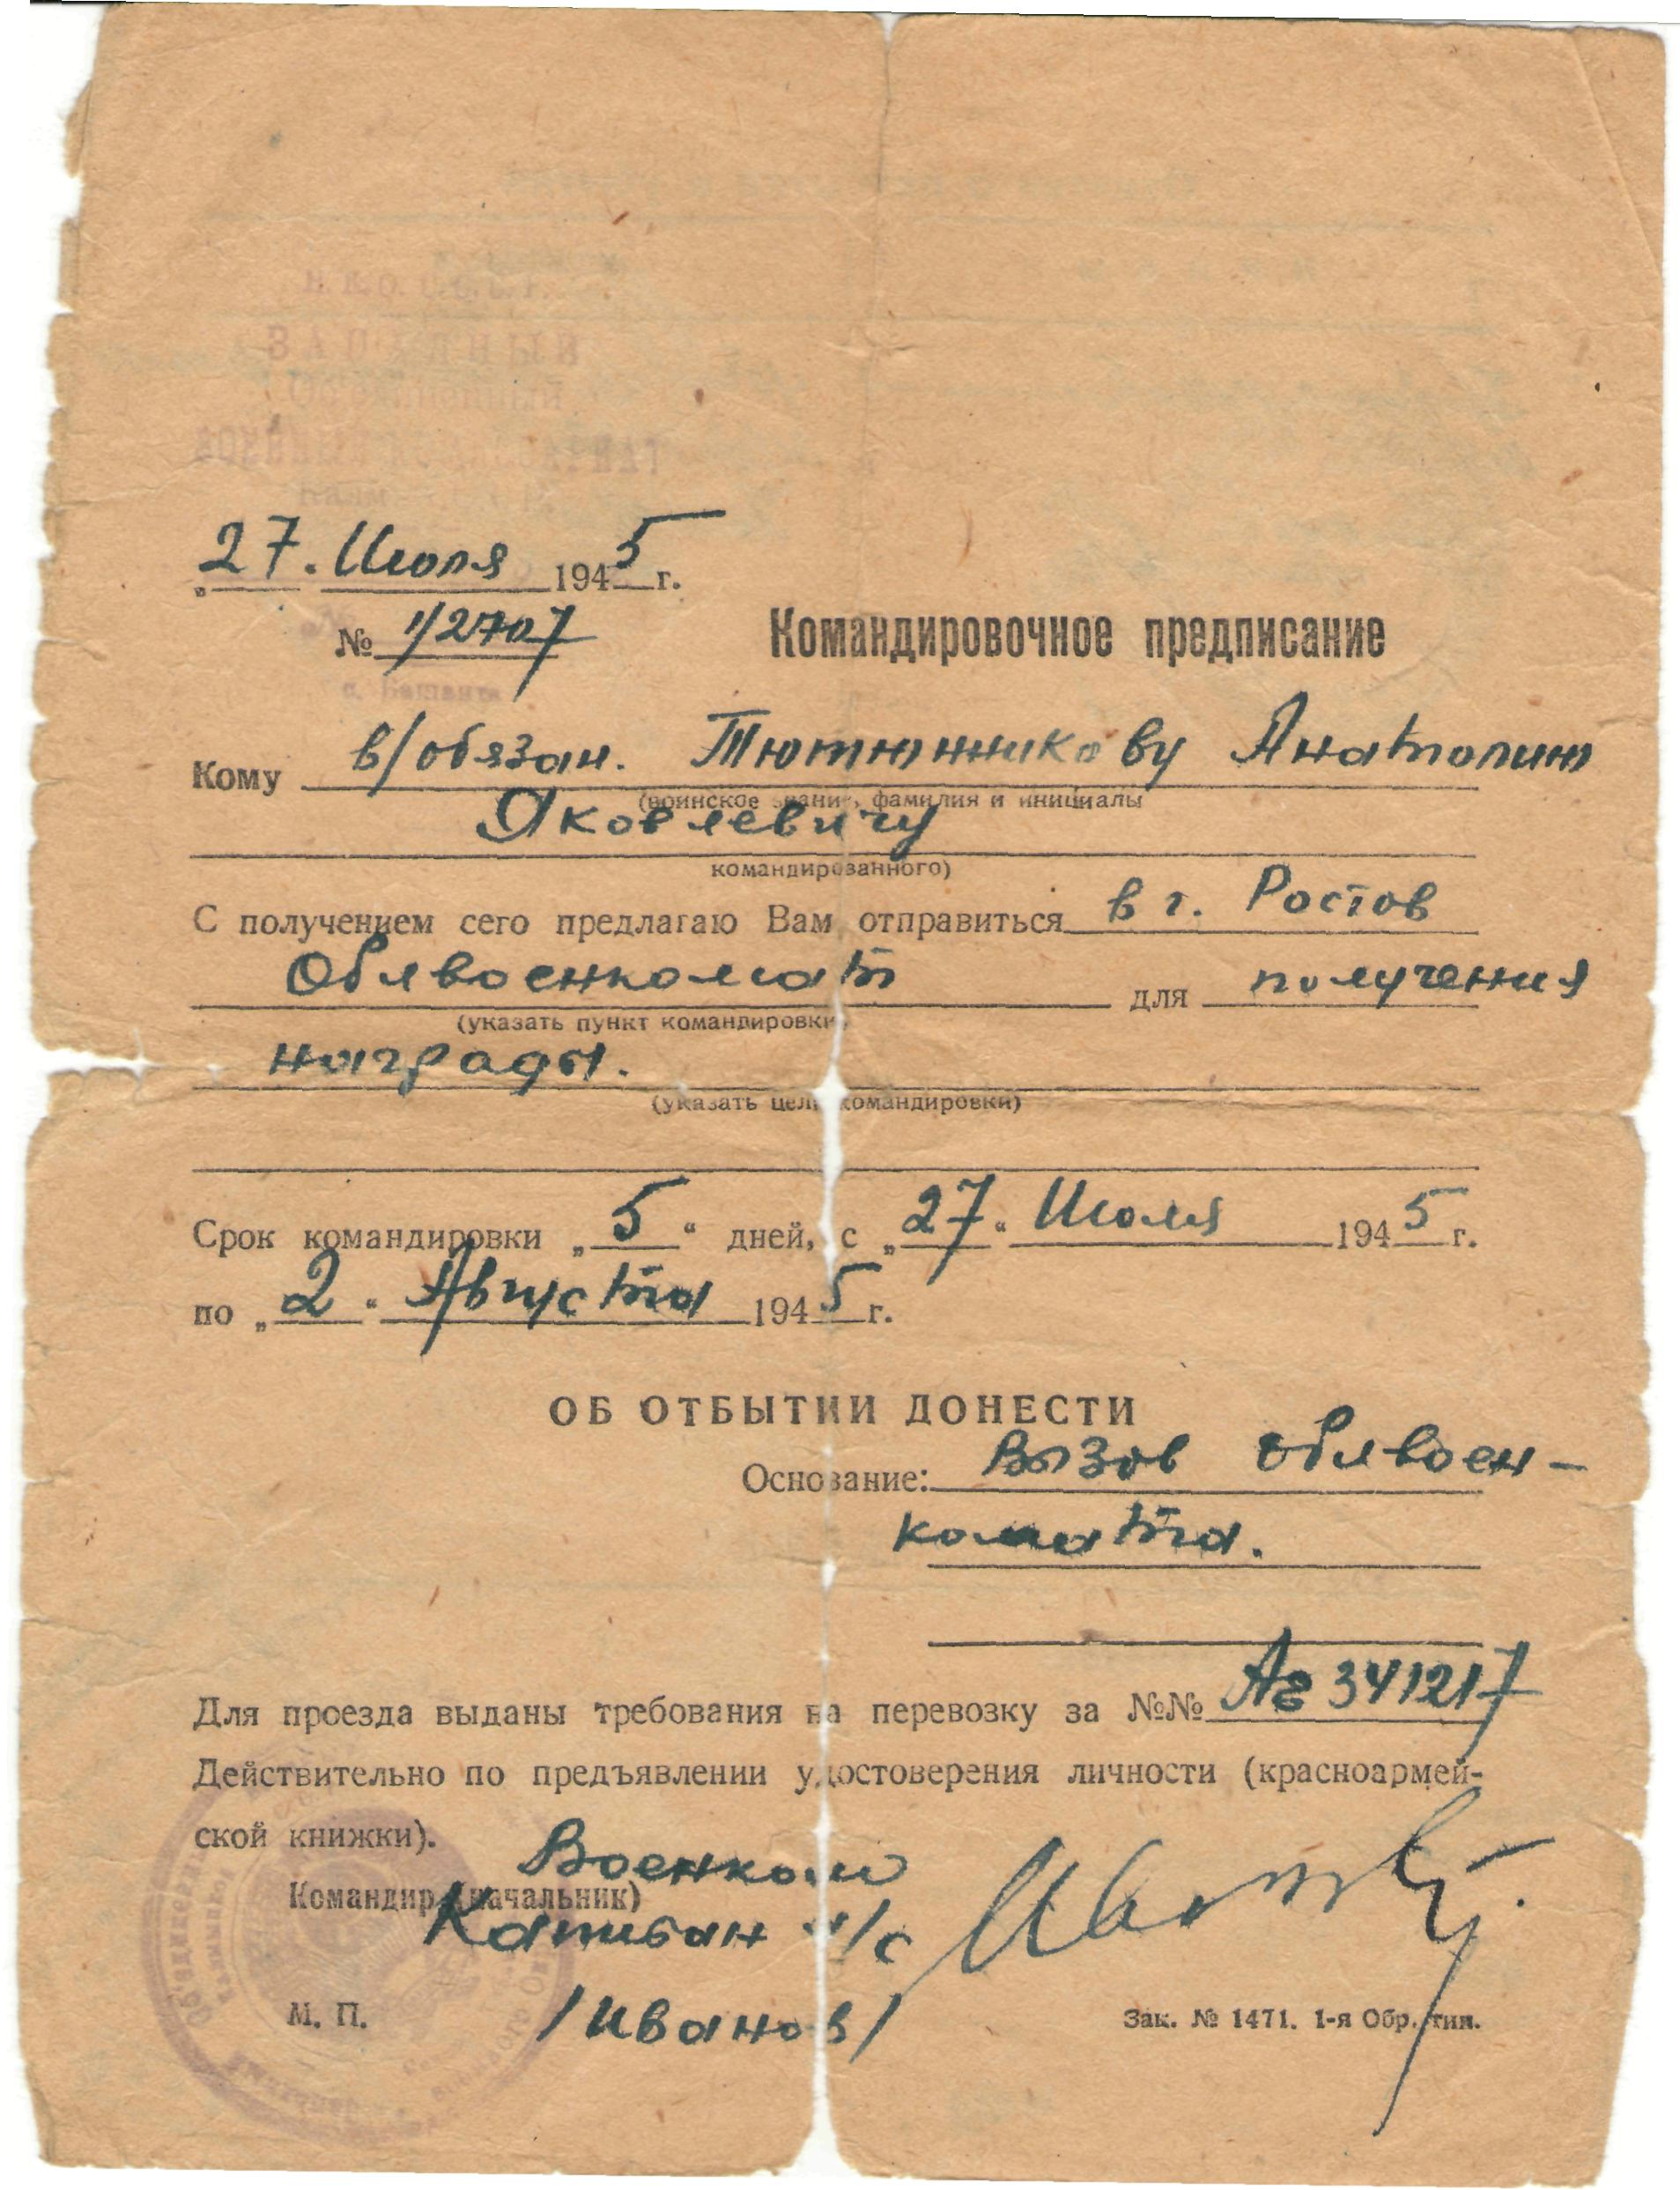 Н.К.О. С.С.С.Р.
ЗАПАДНЫЙ
Объединенный
ВОЕННЫЙ КОМИССАРИАТ
„27. Июля 1945 г.
№ 1/2707
с. Башанта
Командировочное предписание
Кому в/обязан. Тютюнникову Анатолию
(воинское звание, фамилия и инициалы
Яковлевичу
командированного)
С получением сего предлагаю Вам отправиться в г. Ростов
Облвоенкомат для получения
(указать пункт командировки)
награды.
(указать цель командировки)
Срок командировки „5“ дней, с „27“ Июля 1945 г.
по „2“ Августа 1945 г.
ОБ ОТБЫТИИ ДОНЕСТИ
Основание: Вызов облвоен-
комата.
Для проезда выданы требования на перевозку за №№ АЕ 341217
Действительно по предъявлении удостоверения личности (красноармей-
ской книжки).
Военком
Командир (начальник)
Капитан а/с
М. П. /Иванов/
Зак. № 1471. 1-я Обр. тип.